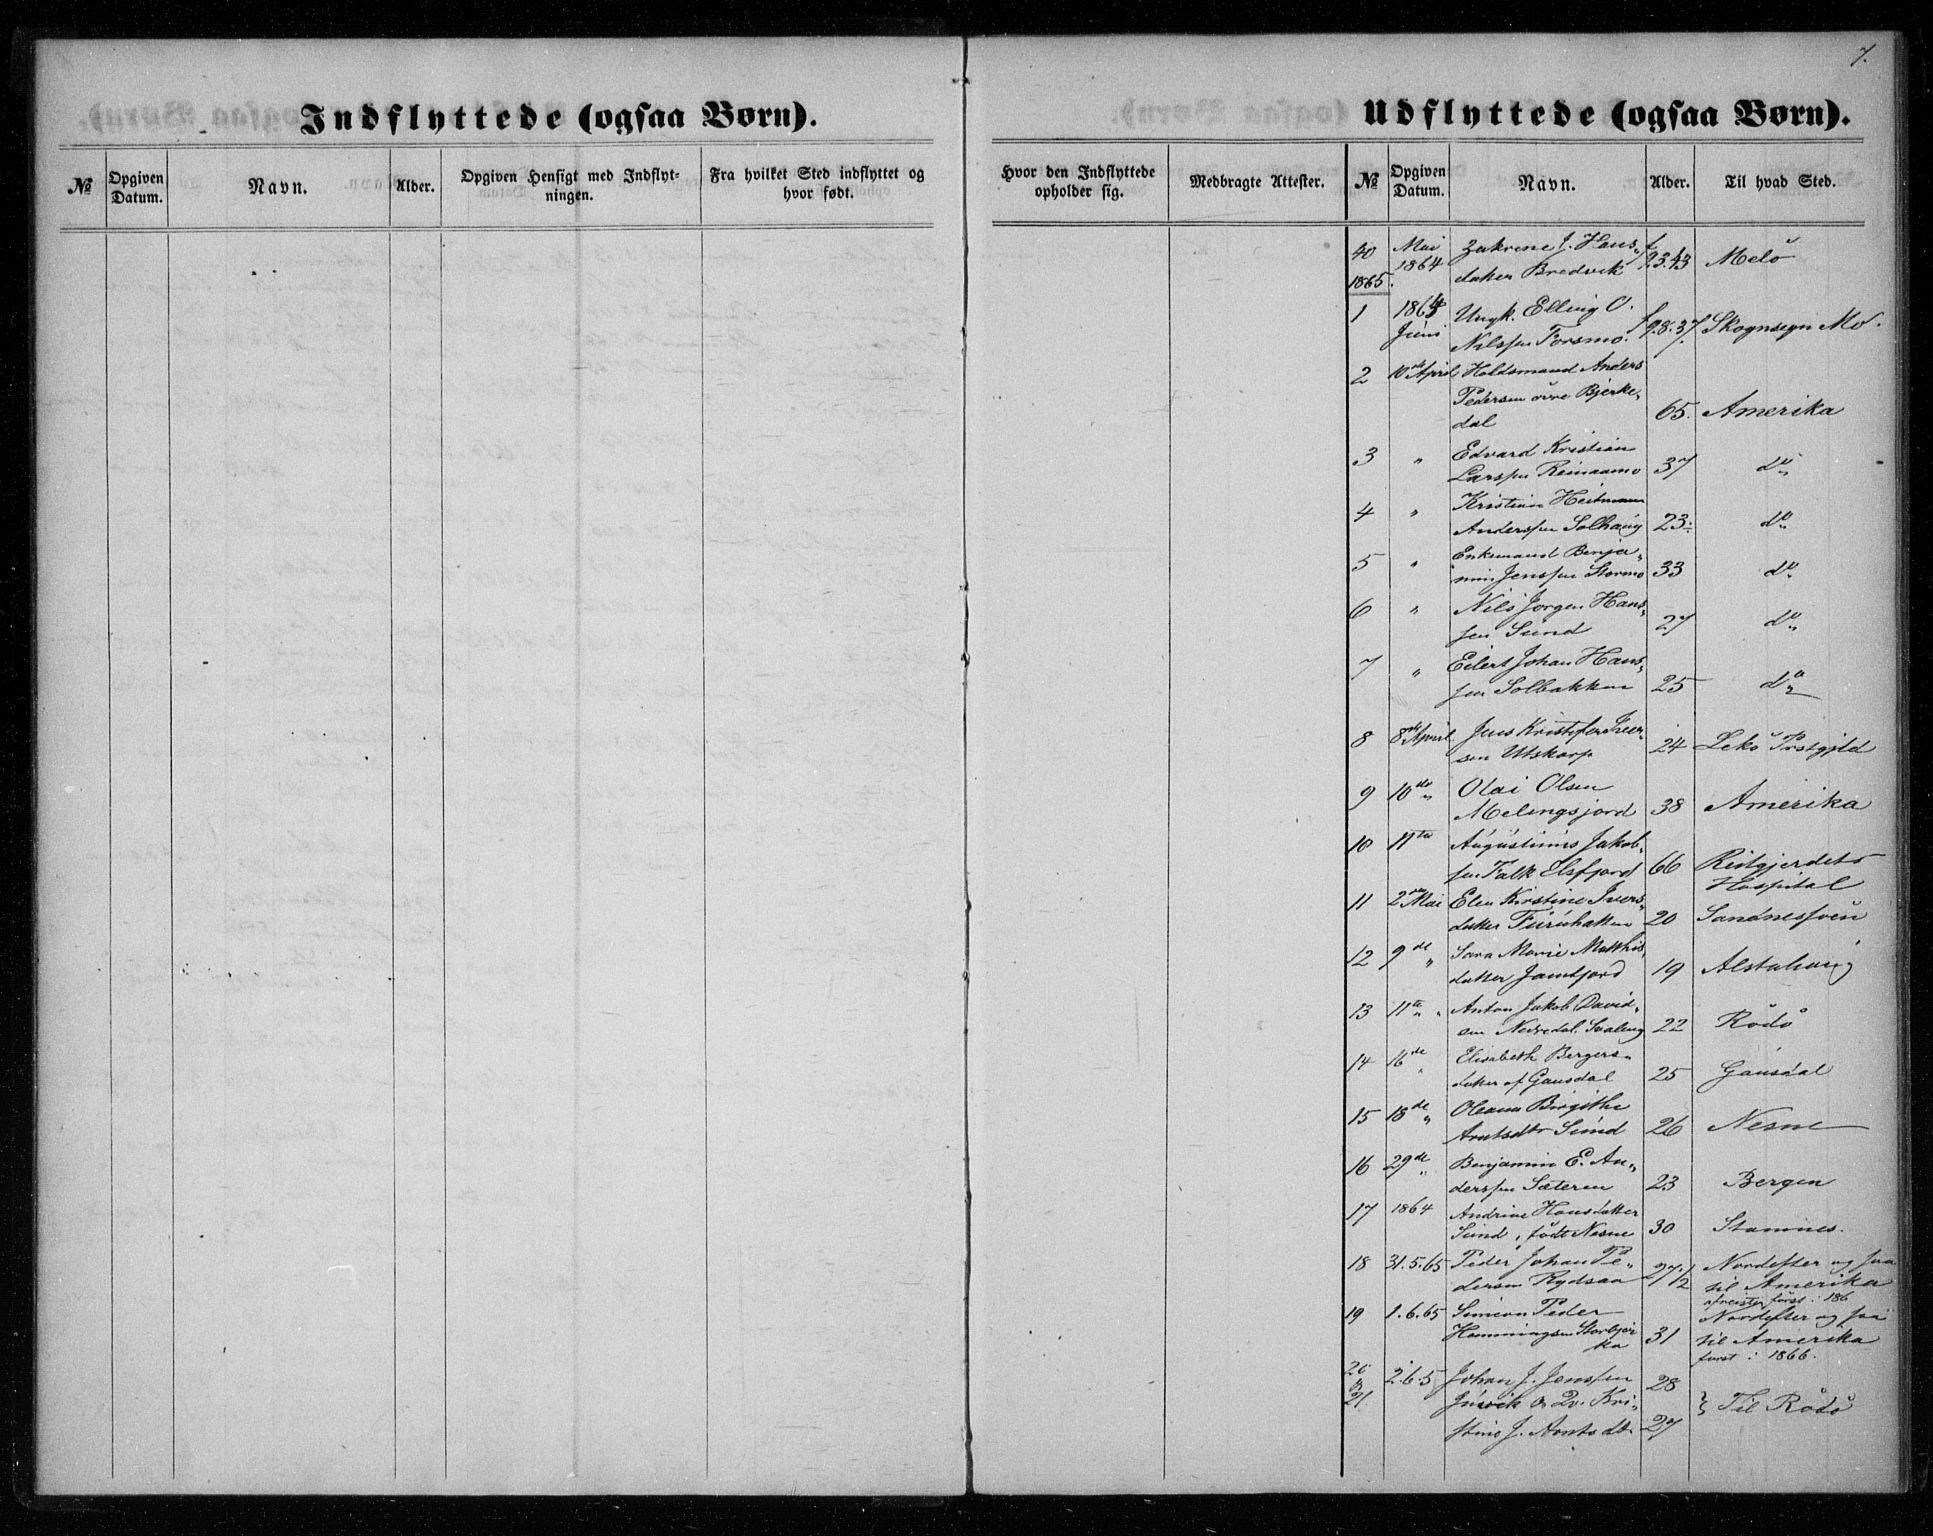 7.
Indflyttede (ogsaa Børn).
№ Opgiven Datum. Navn. Alder. Opgiven Hensigt med Indflytningen. Fra hvilket Sted indflyttet og hvor født.
Udflyttede (ogsaa Børn).
Hvor den Indflyttede opholder sig. Medbragte Attester. № Opgiven Datum. Navn. Alder. Til hvad Sted.
40 Mai Zakrine J. Hans„ f.
1864 datter Bredvik 9.3.43 Melö
1865.
1 1864 Ungk. Elling O.
Juni Nilssen Forsmo. f 9.8.37. Skognsegn Mo.
2 10de April Holdsmand Anders
Pedersen övre Bjerke„
dal 65. Amerika
3 „ Edvard Kristian
Larssen Reinaamo 37 do„
4 „ Kristian Heitmann
Anderssen Solhaug 23: do„
5 „ Enkemand Benja„
min Jenssen Stormo 33 do„
6 „ Nils Jørgen Hans„
sen Sund 27 do„
7 „ Eilert Johan Hans„
sen Solbakken 25 do„
8 8de April Jens Kristofer Iver„
sen Utskarp 24 Lekö Prstgjld
9 10de „ Olai Olsen
Melingsjord 38 Amerika
10 11te Augustinus Jakob„
sen Falk Elsfjord 66 Reitgjerdets
Hospital
11 2den Mai Elen Kirstine Ivers„
datter Furuhatten 20 Sandnessöen
12 9de „ Sara Marie Matthis„
datter Jamtfjord 19 Alstahaug
13 11te „ Anton Jakob David„
sen Nedredal. Svaleng 22 Rödö
14 16de „ Elisabeth Bergers„
datter af Gausdal 25 Gausdal
15 18de „ Oleana Birgithe
Arntsdtr Sund 26 Nesne
16 29de „ Benjamin E. An„
derssen Sæteren 23 Bergen
17 1864 Andrine Hansdatter
Sund, födt Nesne 30 Stamnes.
18 31.5.65 Peder Johan Pe„
dersen Rydsaa 27 1/2 Nordefter og saa
til Amerika
afreister först i 186
19 1.6.65 Simeon Peder
Hemmingsen Storbjer
ka 31 Nordefter og saa
til Amerika
först i 1866.
20 2.6.5 Johan J. Jenssen 28
& Jusvik & Qv. Kri„
21. stine J. Arntsdtr 27 } Til Rödö